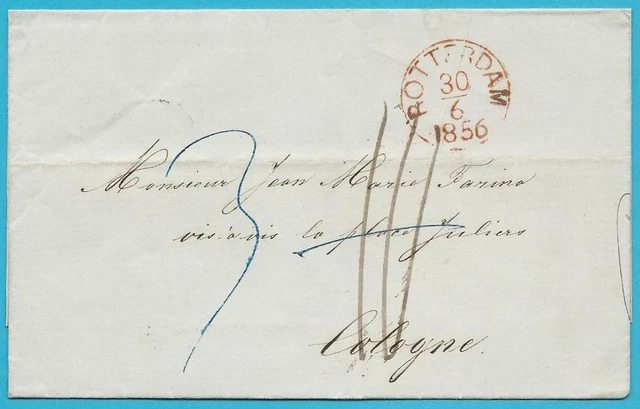 ROTTERDAM
30
6
1856
Monsieur Jean Marie Farina
vis à vis la place Juliers
Cologne.
3